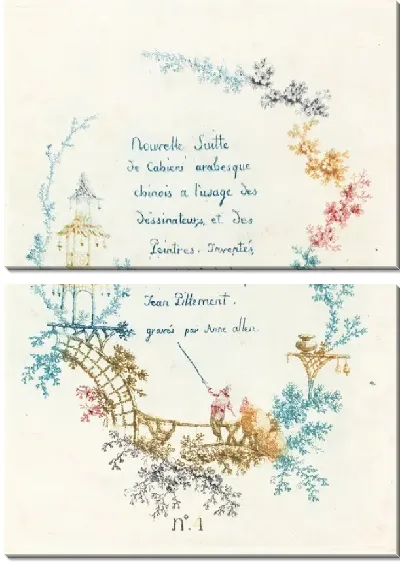 Nouvelle Suitte
de Cahiers arabesque
chinois a l'usage des
dessinateurs et des
Peintres. Inventés
Jean Pillement.
gravés par Anne allen.
n.º 1